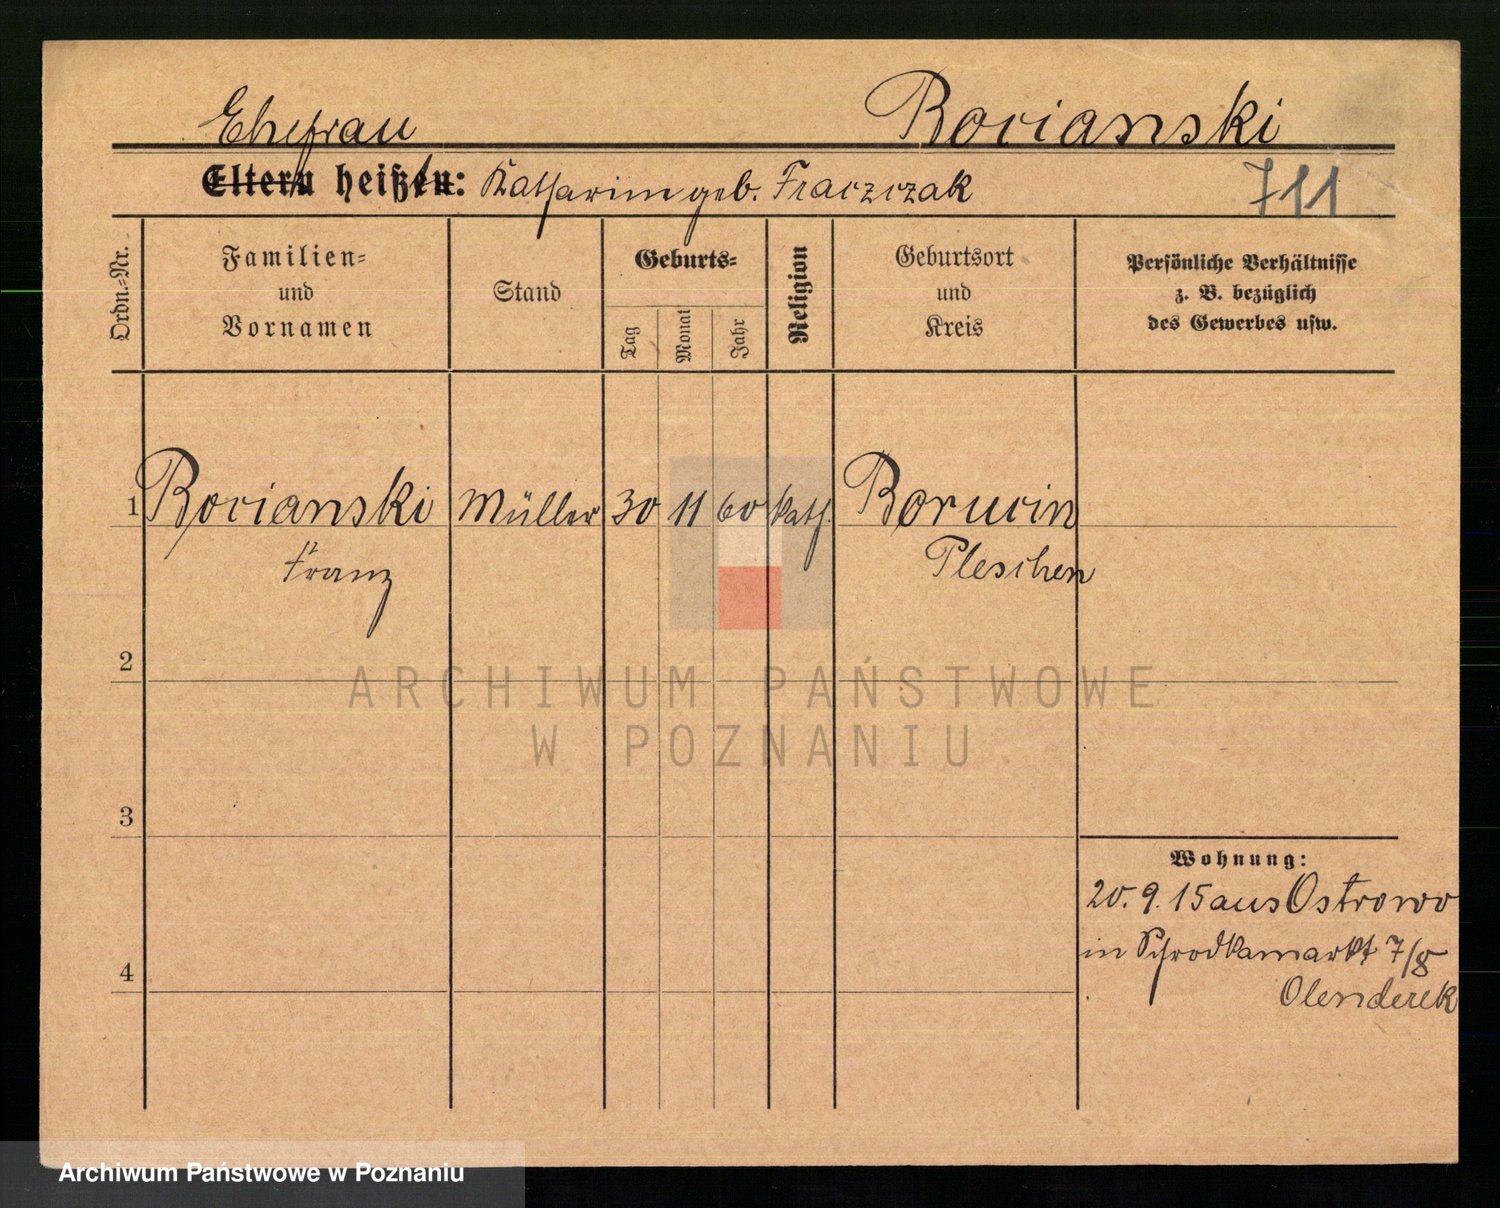 Ehefrau Bocianski
Eltern heißen: Katharina geb. Fraczczak 711
Ordn.-Nr.
Familien-
und
Vornamen
Stand
Geburts-
Tag
Monat
Jahr
Religion
Geburtsort
und
Kreis
Persönliche Verhältnisse
z. B. bezüglich
des Gewerbes usw.
1 Bocianski Müller 30 11 60 kath. Borucin
Franz Pleschen
2
3
4
Wohnung:
20. 9. 15 aus Ostrowo
in Schrodkamarkt 7/8
Olenderek
ARCHIWUM PAŃSTWOWE
W POZNANIU
Archiwum Państwowe w Poznaniu